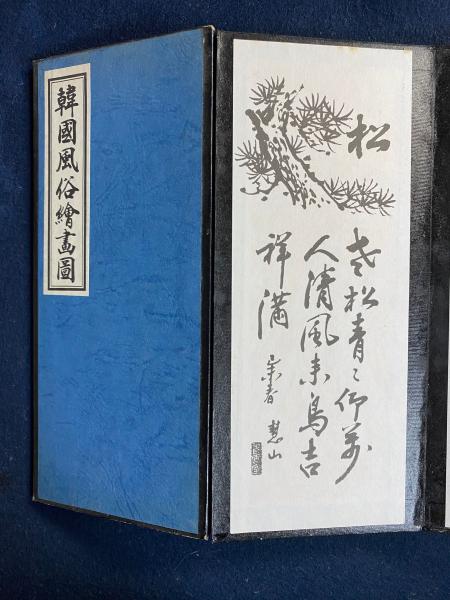 韓國風俗繪畫圖
松
老松青々仰萬
人清風来鳥吉
祥満
春 慧山